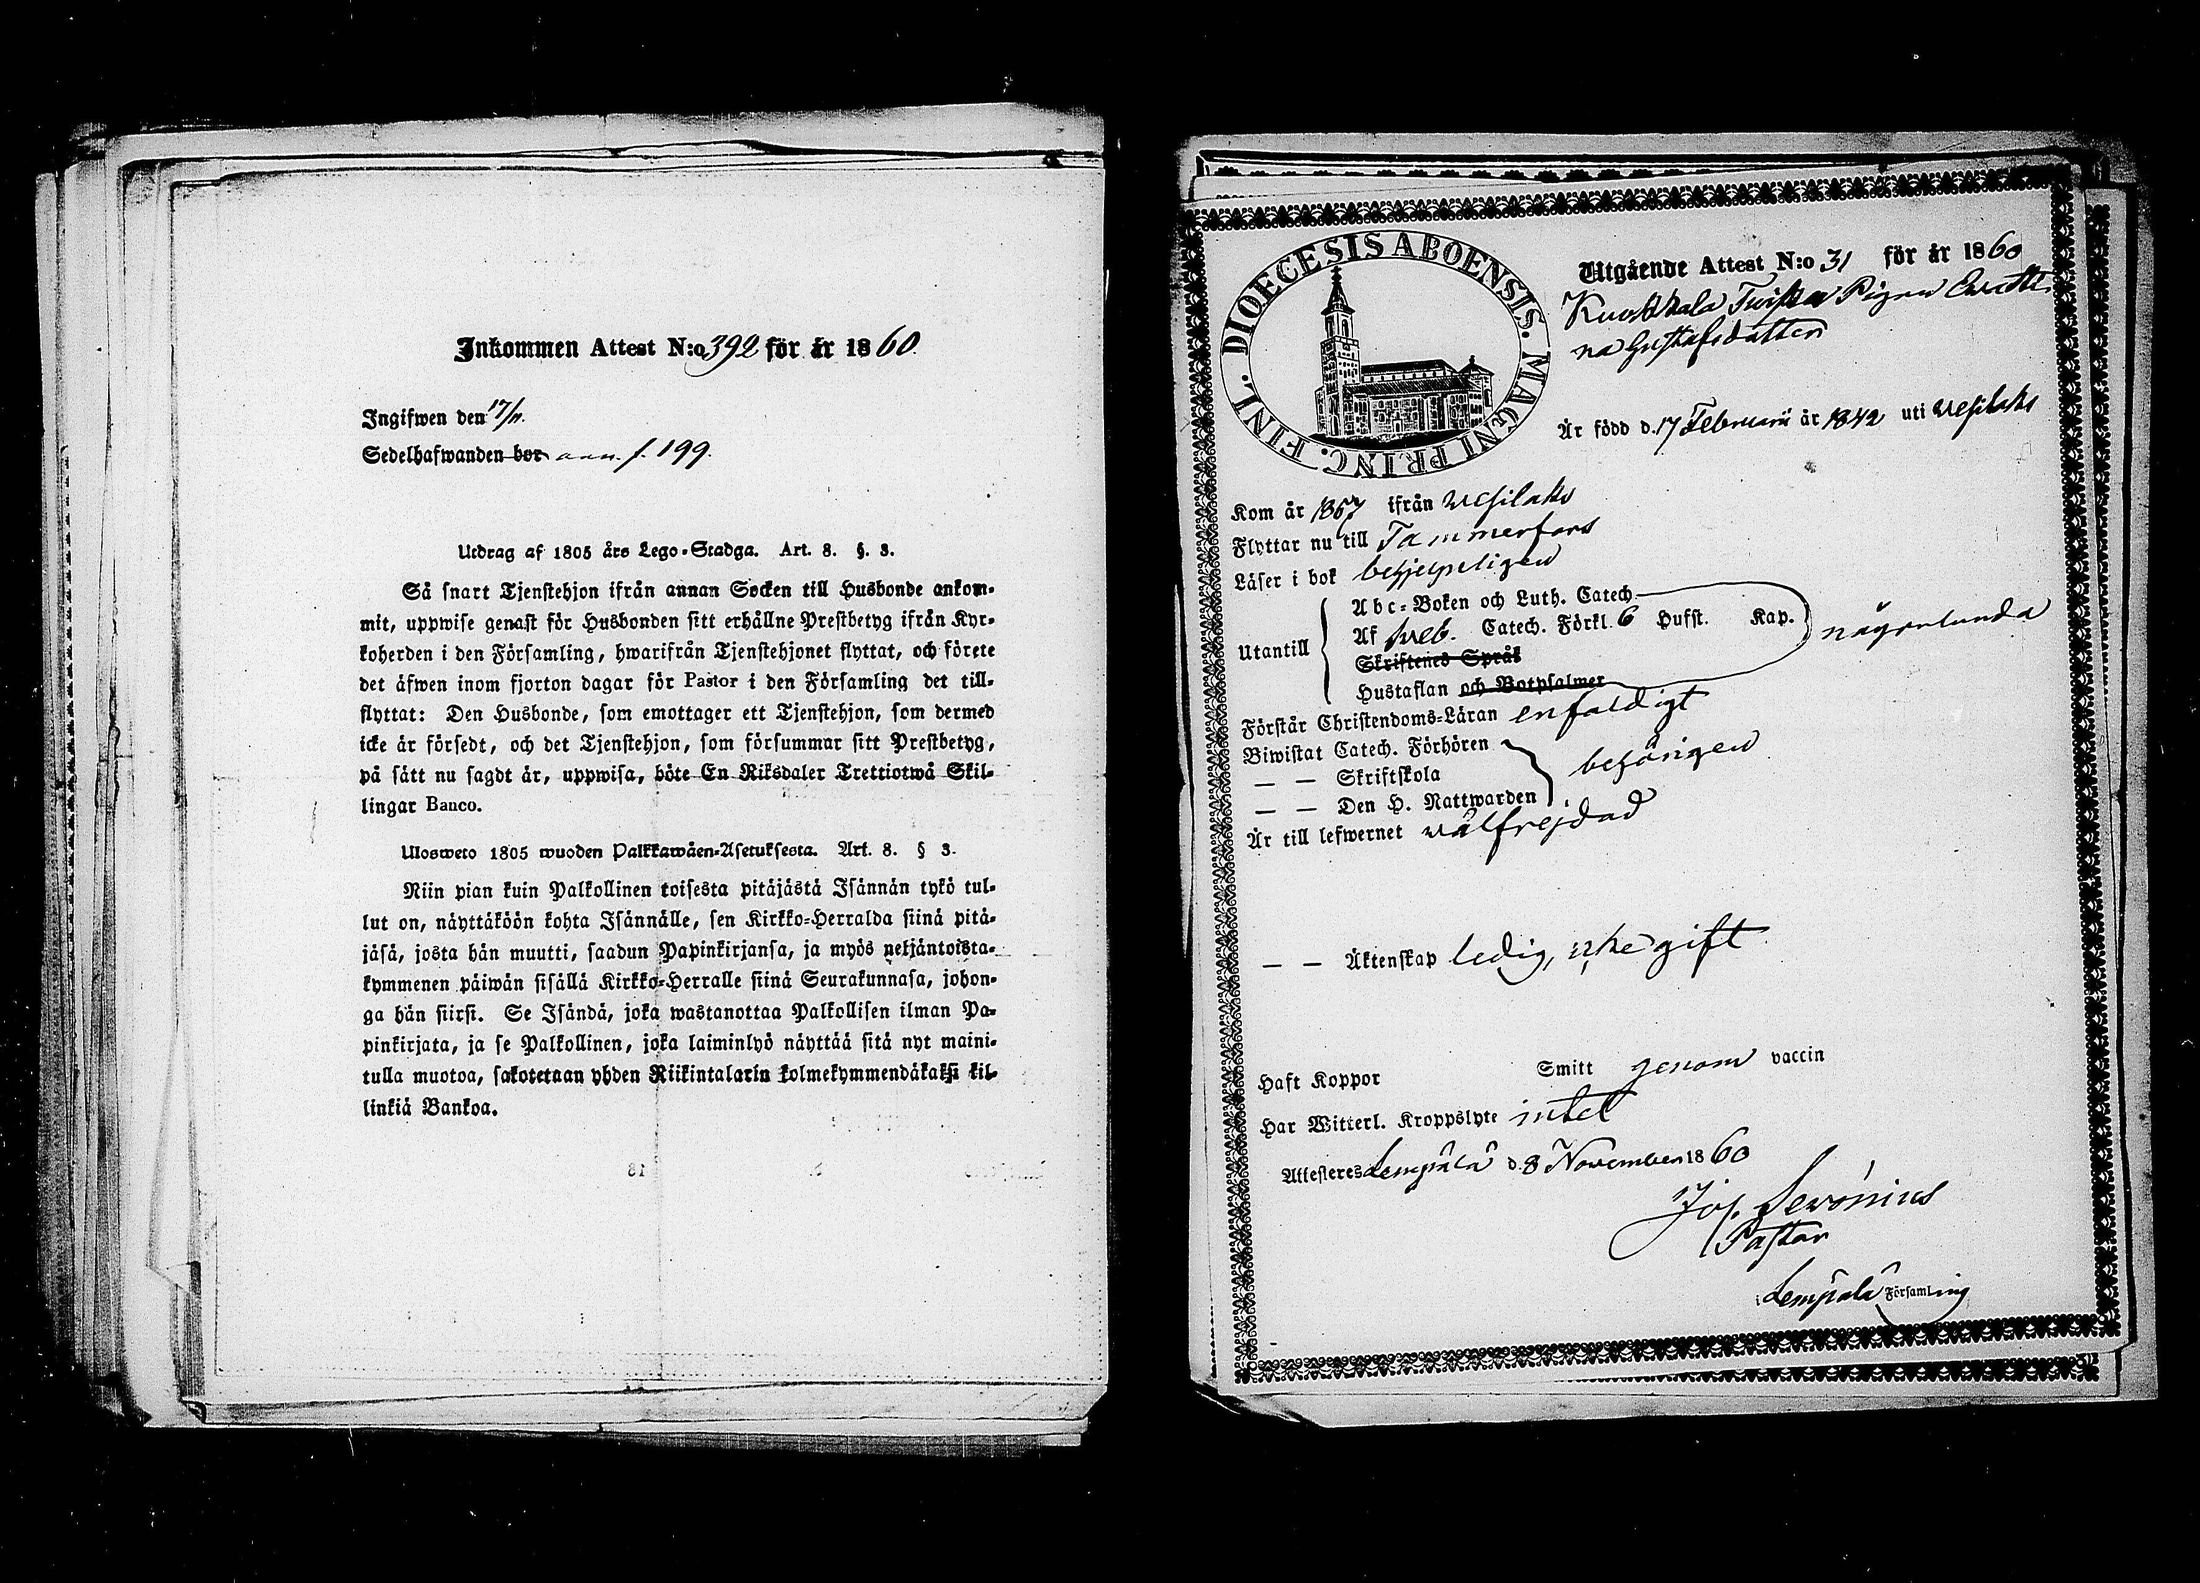 Inkommen Attest N:o 392 för år 1860.
Ingifwen den 17/11.
Sedelhafwanden bor ann. f. 199.
Utdrag af 1805 års Lego-Stadga. Art. 8. §. 3.
Så snart Tjenstehjon ifrån annan Socken till Husbonde ankom-
mit, uppwise genast för Husbonden sitt erhållne Prestbetyg ifrån Kyr-
koherden i den Församling, hwarifrån Tjenstehjonet flyttat, och förete
det äfwen inom fjorton dagar för Pastor i den Församling det till-
flyttat: Den Husbonde, som emottager ett Tjenstehjon, som dermed
icke är försedt, och det Tjenstehjon, som försummar sitt Prestbetyg,
på sätt nu sagdt är, uppwisa, böte En Riksdaler Trettiotwå Skil-
lingar Banco.
Ulosweto 1805 wuoden Palkkawäen-Asetuksesta. Art. 8. § 3.
Niin pian kuin Palkollinen toisesta pitäjästä Isännän tykö tul-
lut on, näyttäköön kohta Isännälle, sen Kirkko-Herralda siinä pitä-
jäsä, josta hän muutti, saadun Papinkirjansa, ja myös neljäntoista-
kymmenen päiwän sisällä Kirkko-Herralle siinä Seurakunnasa, johon-
ga hän siirsi. Se Isändä, joka wastanottaa Palkollisen ilman Pa-
pinkirjata, ja se Palkollinen, joka laiminlyö näyttää sitä nyt maini-
tulla muotoa, sakotetaan yhden Riikintalarin kolmekymmendäkaksi kil-
linkiä Bankoa.
DIOECESIS ABOENSIS. MAGNI PRINC. FINL.
Utgående Attest N:o 31 för år 1860
Kuokkala Pigan
na Gustafsdotter
Är född d. 17 Februarii år 1842 uti Vesilaks
Kom år ifrån Vesilaks
Flyttar nu till Tammerfors
Läser i bok behjelpeligen
Utantill
Abc-Boken och Luth. Catech.
Af Sveb. Catech. Förkl. 6 Hufst. Kap.
Skriftenes Språk
Hustaflan och Botpsalmer
någorlunda
Förstår Christendoms-Läran enfaldigt
Biwistat Catech. Förhören
— — Skriftskola
— — Den H. Nattwarden
behörigen
Är till lefwernet välfrejdad
— — Äktenskap ledig, icke gift
Haft Koppor Smitt genom vaccin
Har Witterl. Kroppslyte intet
Attesteres Lempälä d. 8 November 1860
Jos. Serönius
Pastor
i Lempälä Församling